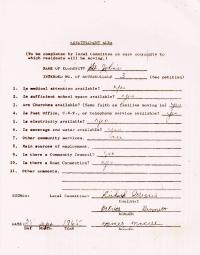 RESETTLEMENT AREA
(To be completed by Local Committee on each community to
which residents will be moving.)
NAME OF COMMUNITY St. John's
INTENDED NO. OF HOUSEHOLDS 3 (See petition)
1. Is medical attention available? yes
2. Is sufficient school space available? yes
3. Are Churches available? (Same faith as families moving in) yes
4. Is Post Office, C.N.T., or telephone service available? yes
5. Is electricity available? yes
6. Is sewerage and water available? yes
7. Other community services.
8. Main sources of employment.
9. Is there a Community Council? yes
10. Is there a Road Connection? yes
11. Other comments.
SIGNED: Local Committee: Richard
Chairman
Patrick Bennett
Member
DATE: 25 1965 James
Day Month Year Member